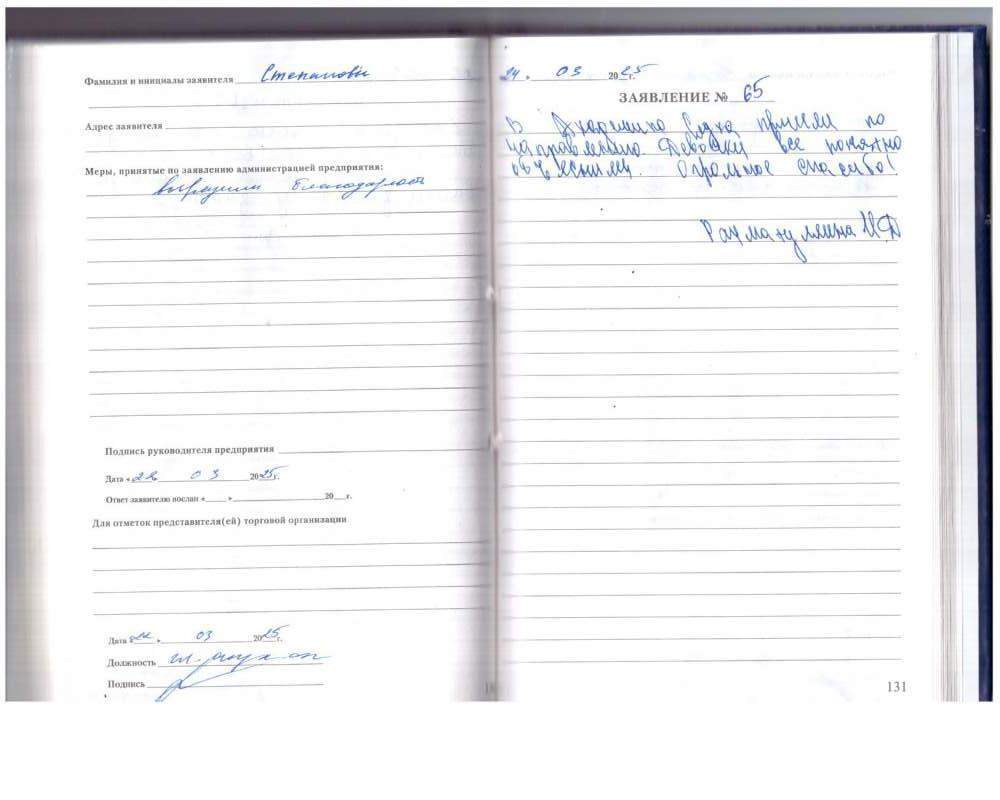 Фамилия и инициалы заявителя Степановы
Адрес заявителя
Меры, принятые по заявлению администрацией предприятия:
выразили благодарность
Подпись руководителя предприятия
Дата « 03 2025г.
Ответ заявителю послан « » 20 г.
Для отметок представителя(ей) торговой организации
Дата « » 03 2025г.
Должность
Подпись
24. 03 2025г.
ЗАЯВЛЕНИЕ № 65
В Академию Слуха пришли по
направлению Девочки все понятно
объяснили. Огромное спасибо!
Рахманулина И.Д
131